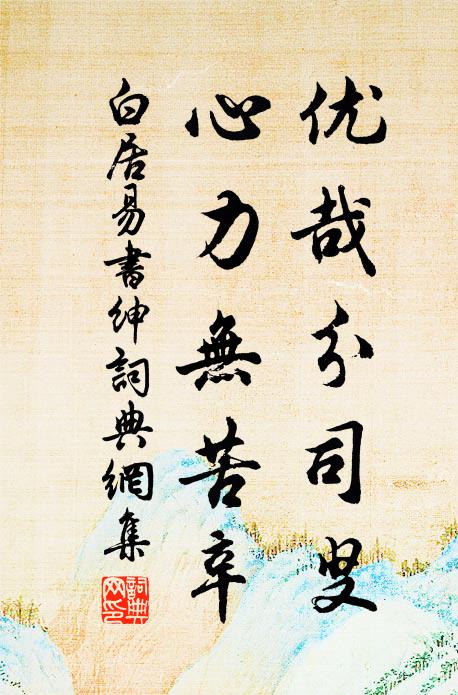 优哉分司叟
心力無苦辛
白居易書紳詞典網集
詞典網印